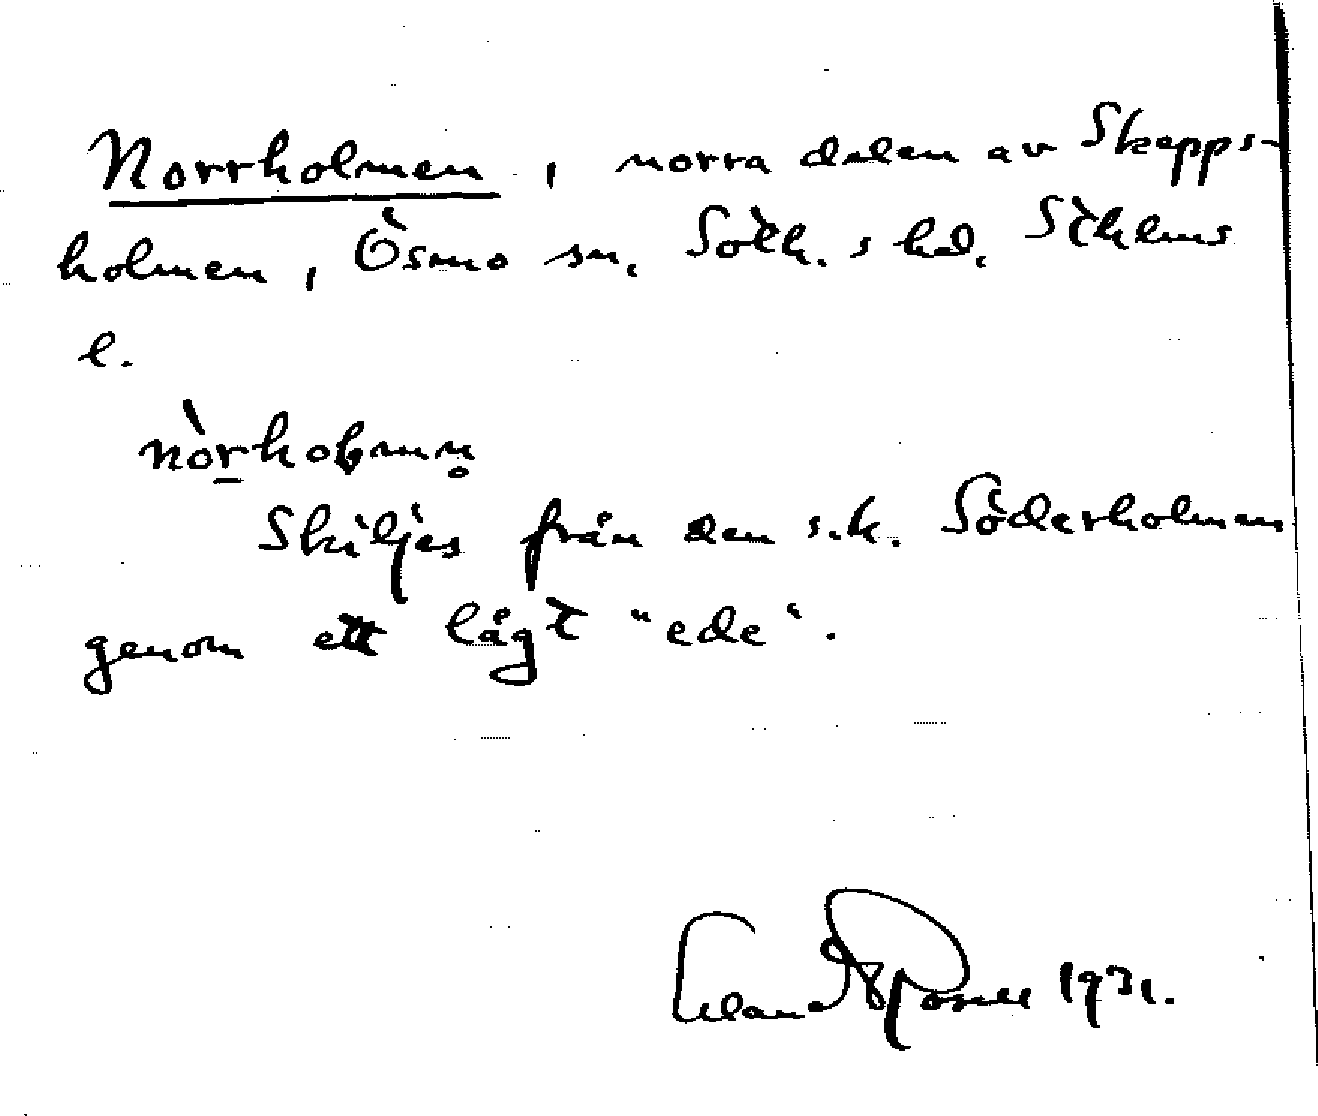 Norrholmen, norra delen av Skepps-
holmen, Ösmo sn, Soth. s hd. Sthlms
l.
nòrholmn̥
Skiljes från den s.k. Söderholmen
genom ett lågt "ede".
Erland Rosell 1931.